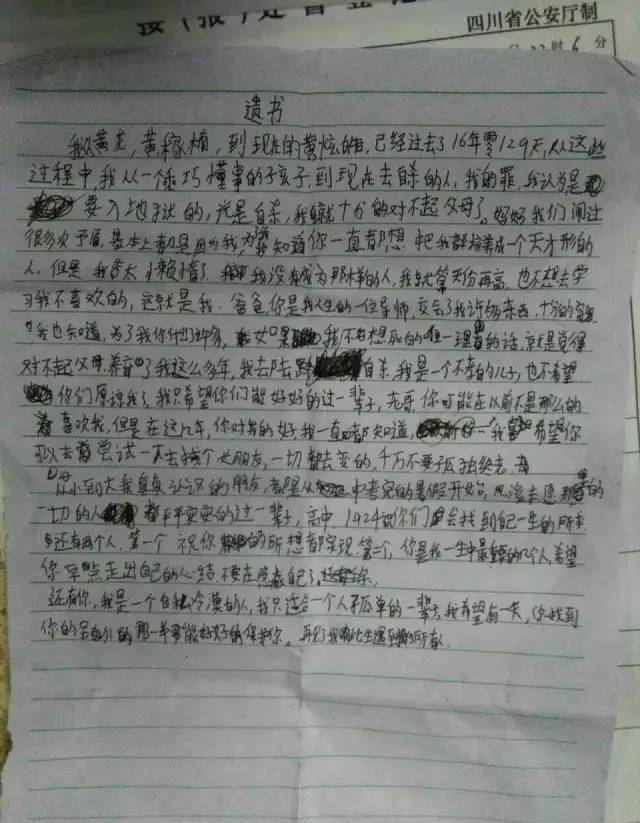 四川省公安厅制
时6分
遗书
到现在的黄炫皓,已经过去了16年零129天,从这些
过程中,我从一个乖巧懂事的子孩子,到现在去自杀的人,我的罪,我认为是
要入地狱的,光是自杀,我就十分的对不起父母了。好好我们闹过
很多次矛盾,基本上都是因为我,我知道你一直都想把我培养成一个天才形的
人,但是我太小懒惰了 我没有成为那样的人,我就算天份再高,也不想去学
习我不喜欢的,这就是我.爸爸,你是我人生的一位导师,交会了我许多东西,十分的
我也知道,为了我你付出许多,如果 我不想死的唯一理由的话,就是觉得
对不起父母,养育了我这么多年,我去 自杀,我是一个不孝的儿子,也不希望
你们原谅我了,我只希望你们能好好的过一辈子,老哥,你可能在以前不是那么的
喜欢我,但是在这几年,你对我的好我一直都知道, 我希望你
可以去尝试一下去找个女朋友,一切都会变的,千万不要孤独终老,
从小到大我真真认识的朋友,都是从 中考完的暑假开始的,
一切的人 都平平安安的过一辈子,高中,1424祝你们会找到自己一生的所求
还有两个人,第一个 祝你 的所想都实现,第二个,你是我一生中最重要的几个人,希望
你早点走出自己的心结,不要在怪自己了,
还有你,我是一个自私冷漠的人,我只适合一个人孤单的一辈子,我希望有一天,你找到
你的另外的那一半可能好好的保护你。